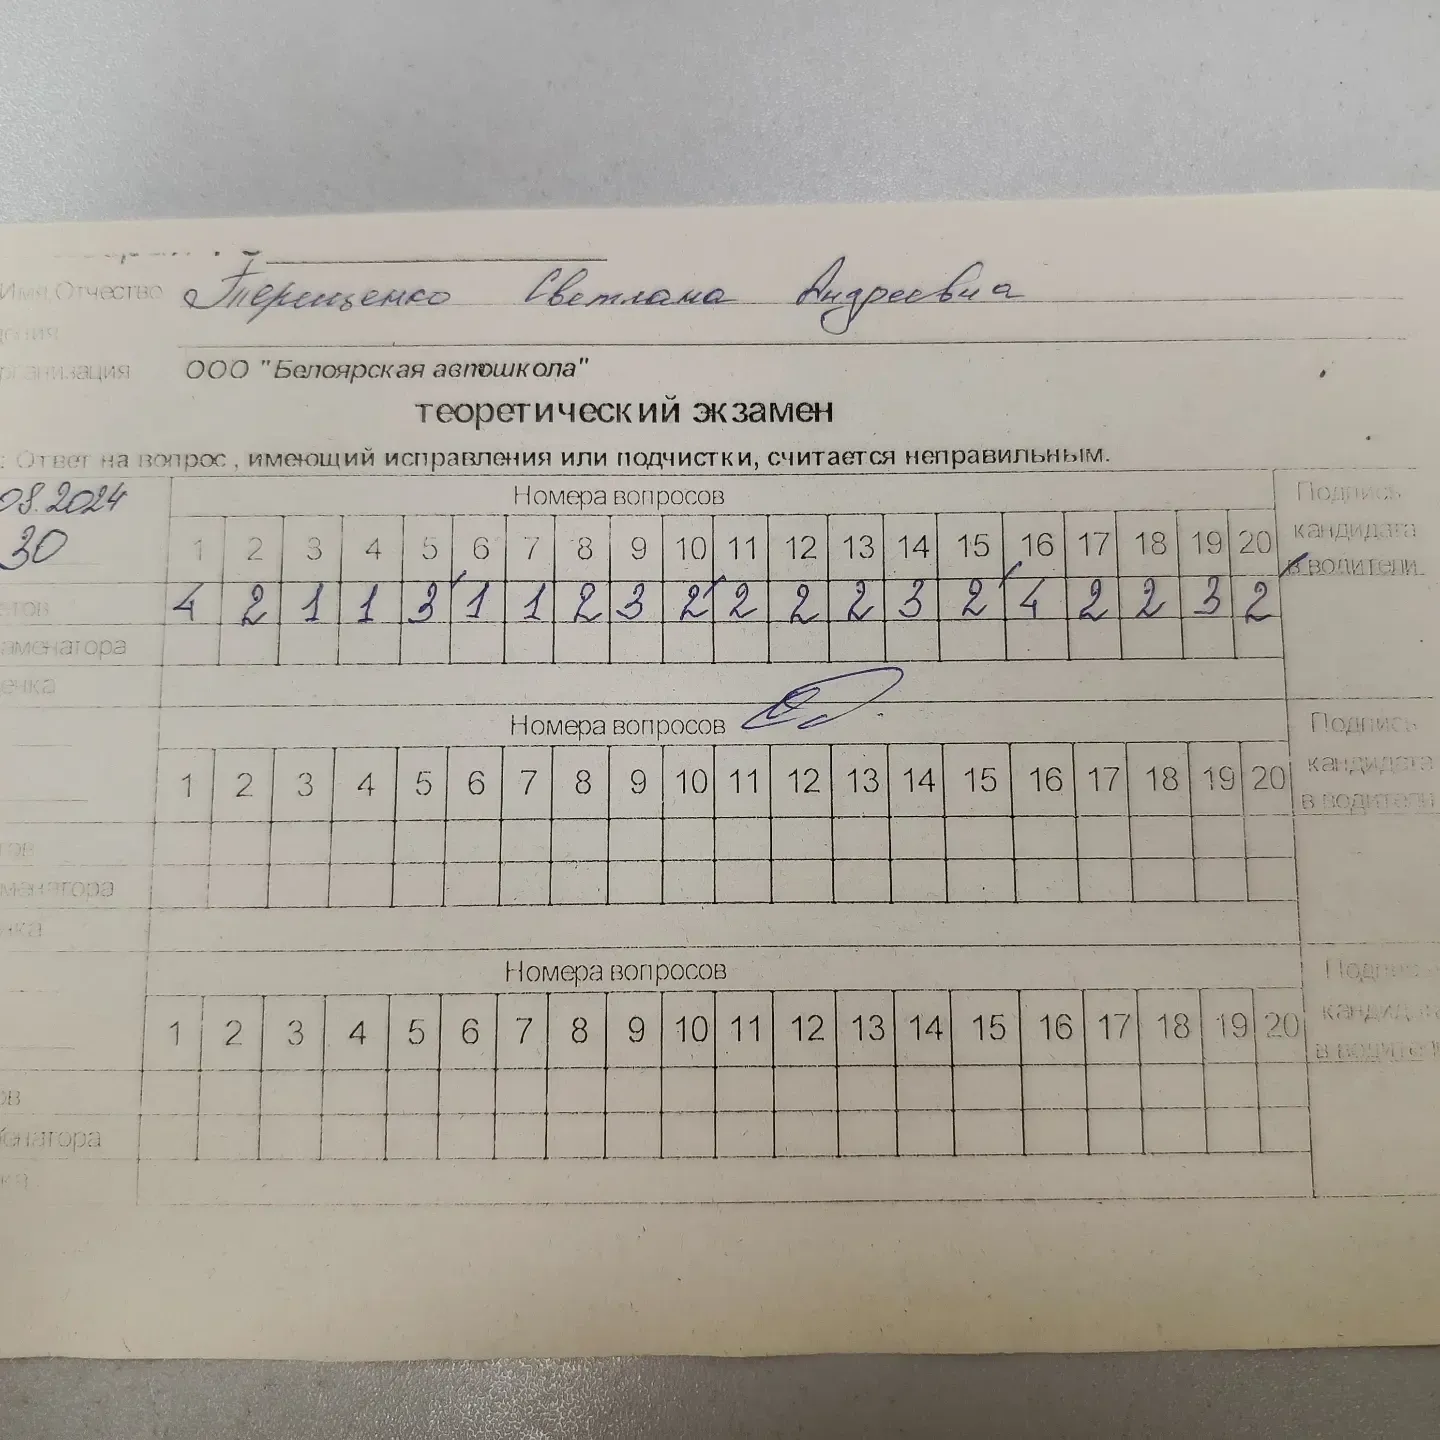 Имя, Отчество Терещенко Светлана Андреевна
ООО "Белоярская автошкола"
теоретический экзамен
: Ответ на вопрос , имеющий исправления или подчистки, считается неправильным.
08.2024 Номера вопросов Подпись
30 1 2 3 4 5 6 7 8 9 10 11 12 13 14 15 16 17 18 19 20 кандидата
в водители
4 2 1 1 3 1 1 2 3 2 2 2 2 3 2 4 2 2 3 2
Номера вопросов Подпись
1 2 3 4 5 6 7 8 9 10 11 12 13 14 15 16 17 18 19 20 кандидата
в водители
Номера вопросов
1 2 3 4 5 6 7 8 9 10 11 12 13 14 15 16 17 18 19 20